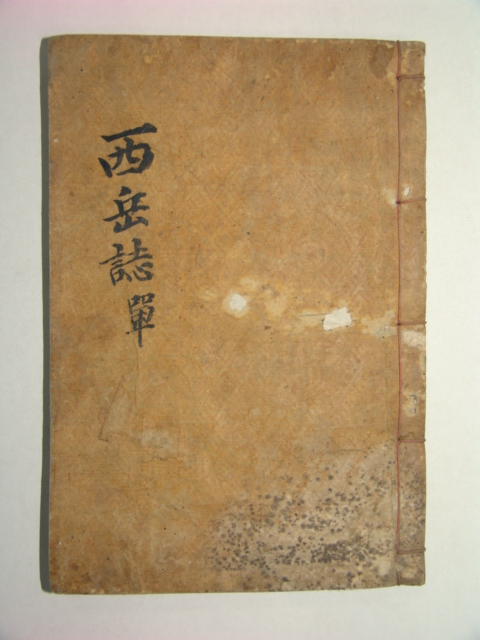 西岳誌單